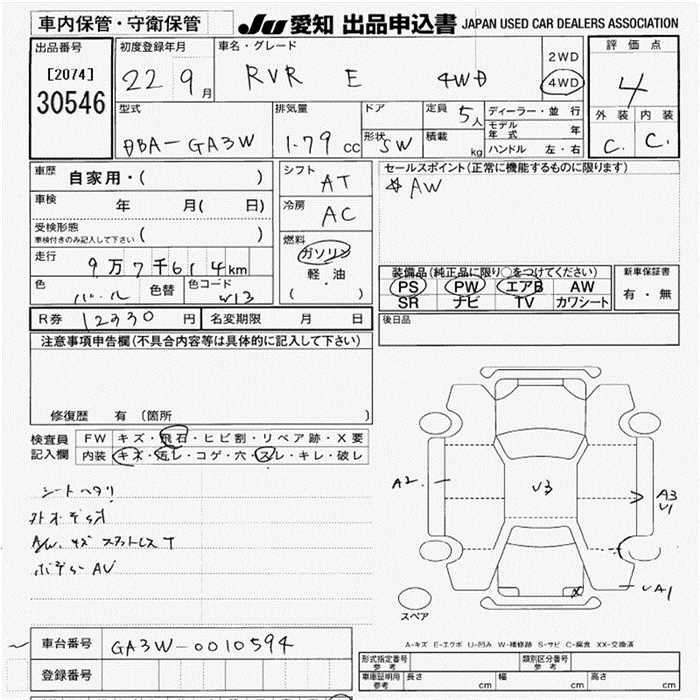 車内保管・守衛保管
JU 愛知 出品申込書 JAPAN USED CAR DEALERS ASSOCIATION
出品番号
[2074]
30546
初度登録年月
22 9月
車名・グレード
RVR E 4WD
2WD
4WD
評価点
4
外装 内装
C. C.
型式
DBA-GA3W
排気量
1.79 cc
ドア
形状 SW
定員 5人
積載 kg
ディーラー・並行
モデル年式 年
ハンドル 左・右
車歴 自家用・( )
車検 年 月( 日)
受検形態
車検付きのみ記入して下さい ( )
走行
9万7千614km
色 パール 色替 色コード W13
シフト AT
冷房 AC
燃料
ガソリン
軽・油
( ・ )
セールスポイント(正常に機能するものに限ります)
☆AW
装備品(純正品に限り○をつけてください)
PS PW エアB AW
SR ナビ TV カワシート
新車保証書
有・無
R券 12330円 名変期限 月 日
後日品
注意事項申告欄(不具合内容等は具体的に記入して下さい)
修復歴 有(箇所 )
検査員記入欄
FW キズ・飛石・ヒビ割・リペア跡・X要
内装 キズ・汚レ・コゲ・穴・スレ・キレ・破レ
シートヘタリ
AW キズ スタットレスT
ボディ AV
A2
U3
A3
U1
UA1
X
スペア
A-キズ E-エクボ U-凹み W-補修跡 S-サビ C-腐食 XX-交換済
車台番号 GA3W-0010594
登録番号
形式指定番号 参考
類別区分番号 参考
車庫証明用 参考 長さ cm 幅 cm 高さ cm